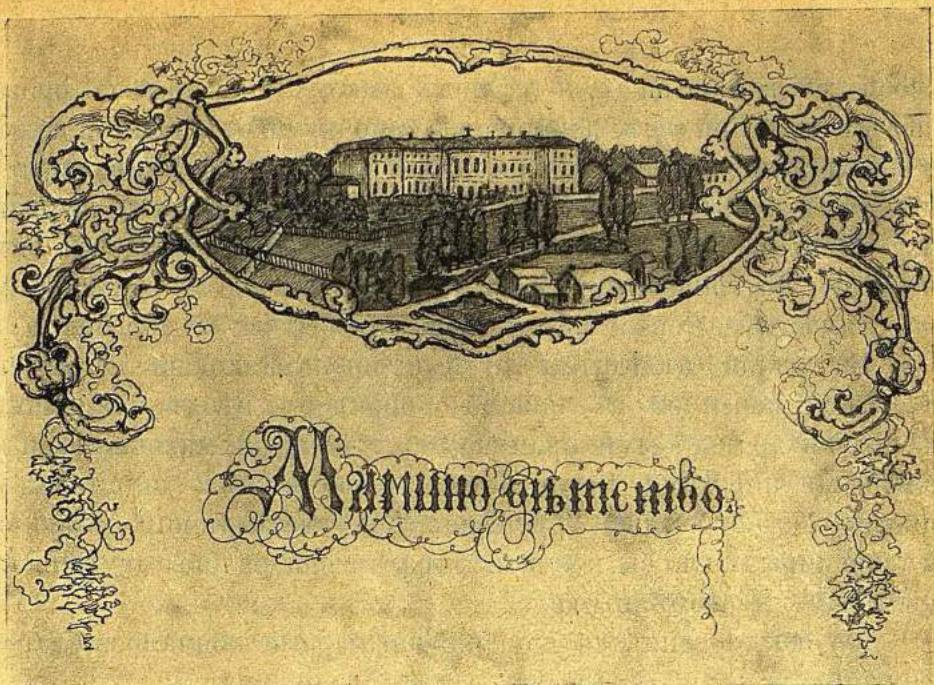 Мамино дѣтство.